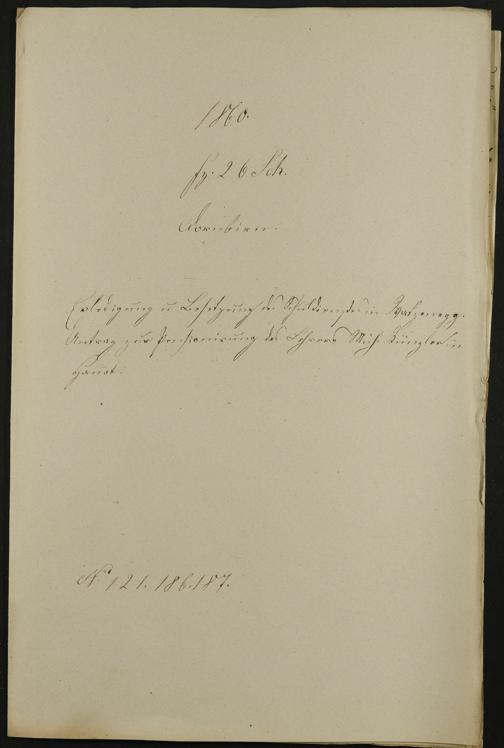 1860.
26 Sch.
Dornbirn.
Erledigung u Besetzung des Schuldienstes in Watzenegg.
Antrag zur Pensionirung des Lehrers Mich. Künzler in
N 121. 186. 187.